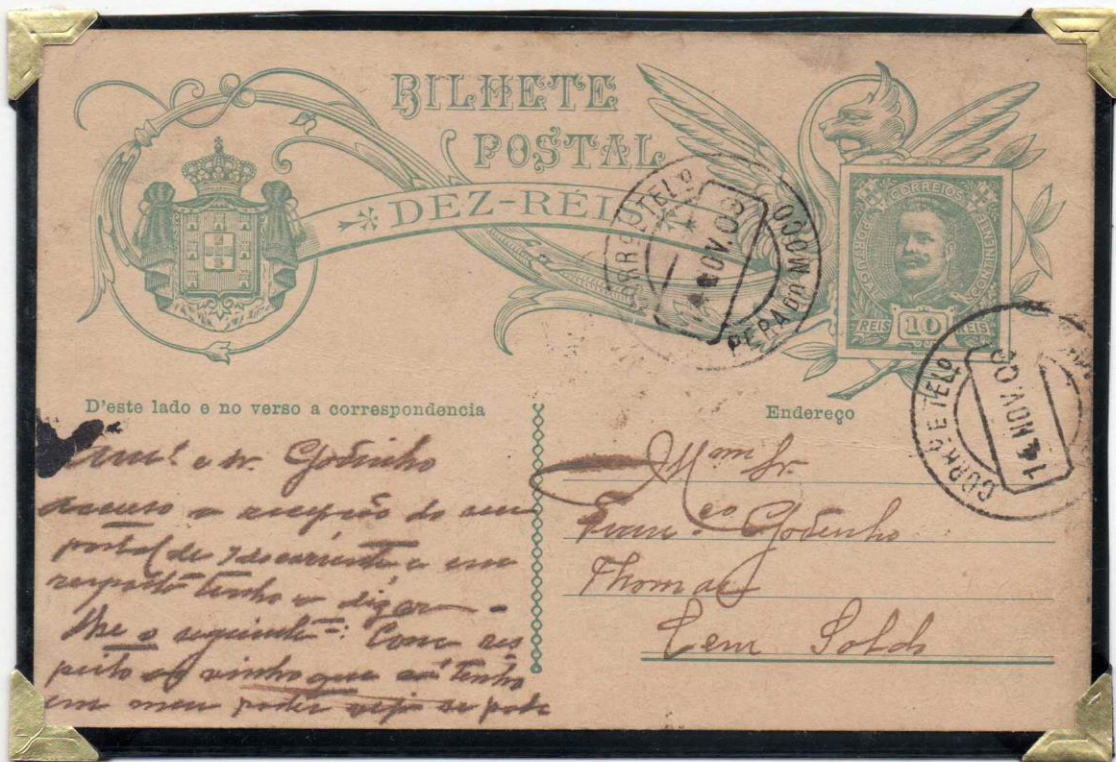 BILHETE
POSTAL
DEZ-RÉIS
CORREIOS
PORTUGAL
CONTINENTE
REIS 10 REIS
CORRº E TELº
NOV. 09
PERA DO MOÇO
CORRº E TELº
14 NOV. 09
D'este lado e no verso a correspondencia
Endereço
Amº e sr. Godinho
accuso a recepção do seu
postal de 7 do corrente e em
resposta tenho a dizer-
lhe o seguinte: Com res
peito ao vinho que cá tenho
em meu poder veja se pode
Illmo Sr.
Franco Godinho
Thomar
Cem Soldos